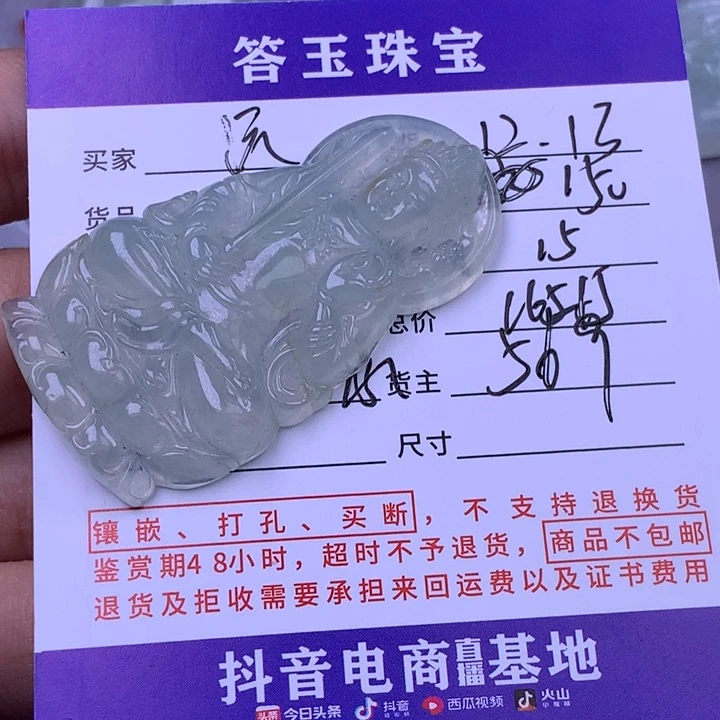 答玉珠宝
买家 12.13
货品 150
15
总价
货主 50
尺寸
镶嵌、打孔、买断，不支持退换货
鉴赏期48小时，超时不予退货，商品不包邮
退货及拒收需要承担来回运费以及证书费用
抖音电商直播基地
头条 今日头条 抖音 西瓜视频 火山